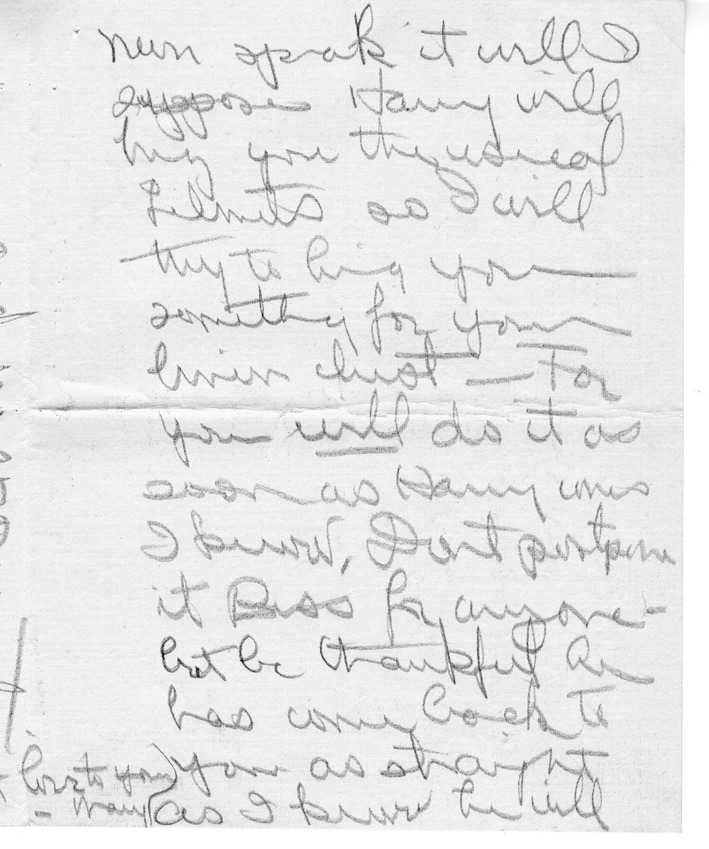 never speak it will I
suppose Harry will
bring you the usual
so I will
try to bring you
something for your
linen chest — For
you will do it as
soon as Harry comes
I know, Don't postpone
it Bess for anyone -
but be thankful he
has come back to
you as straight
as I know he will
love to you
- Mary